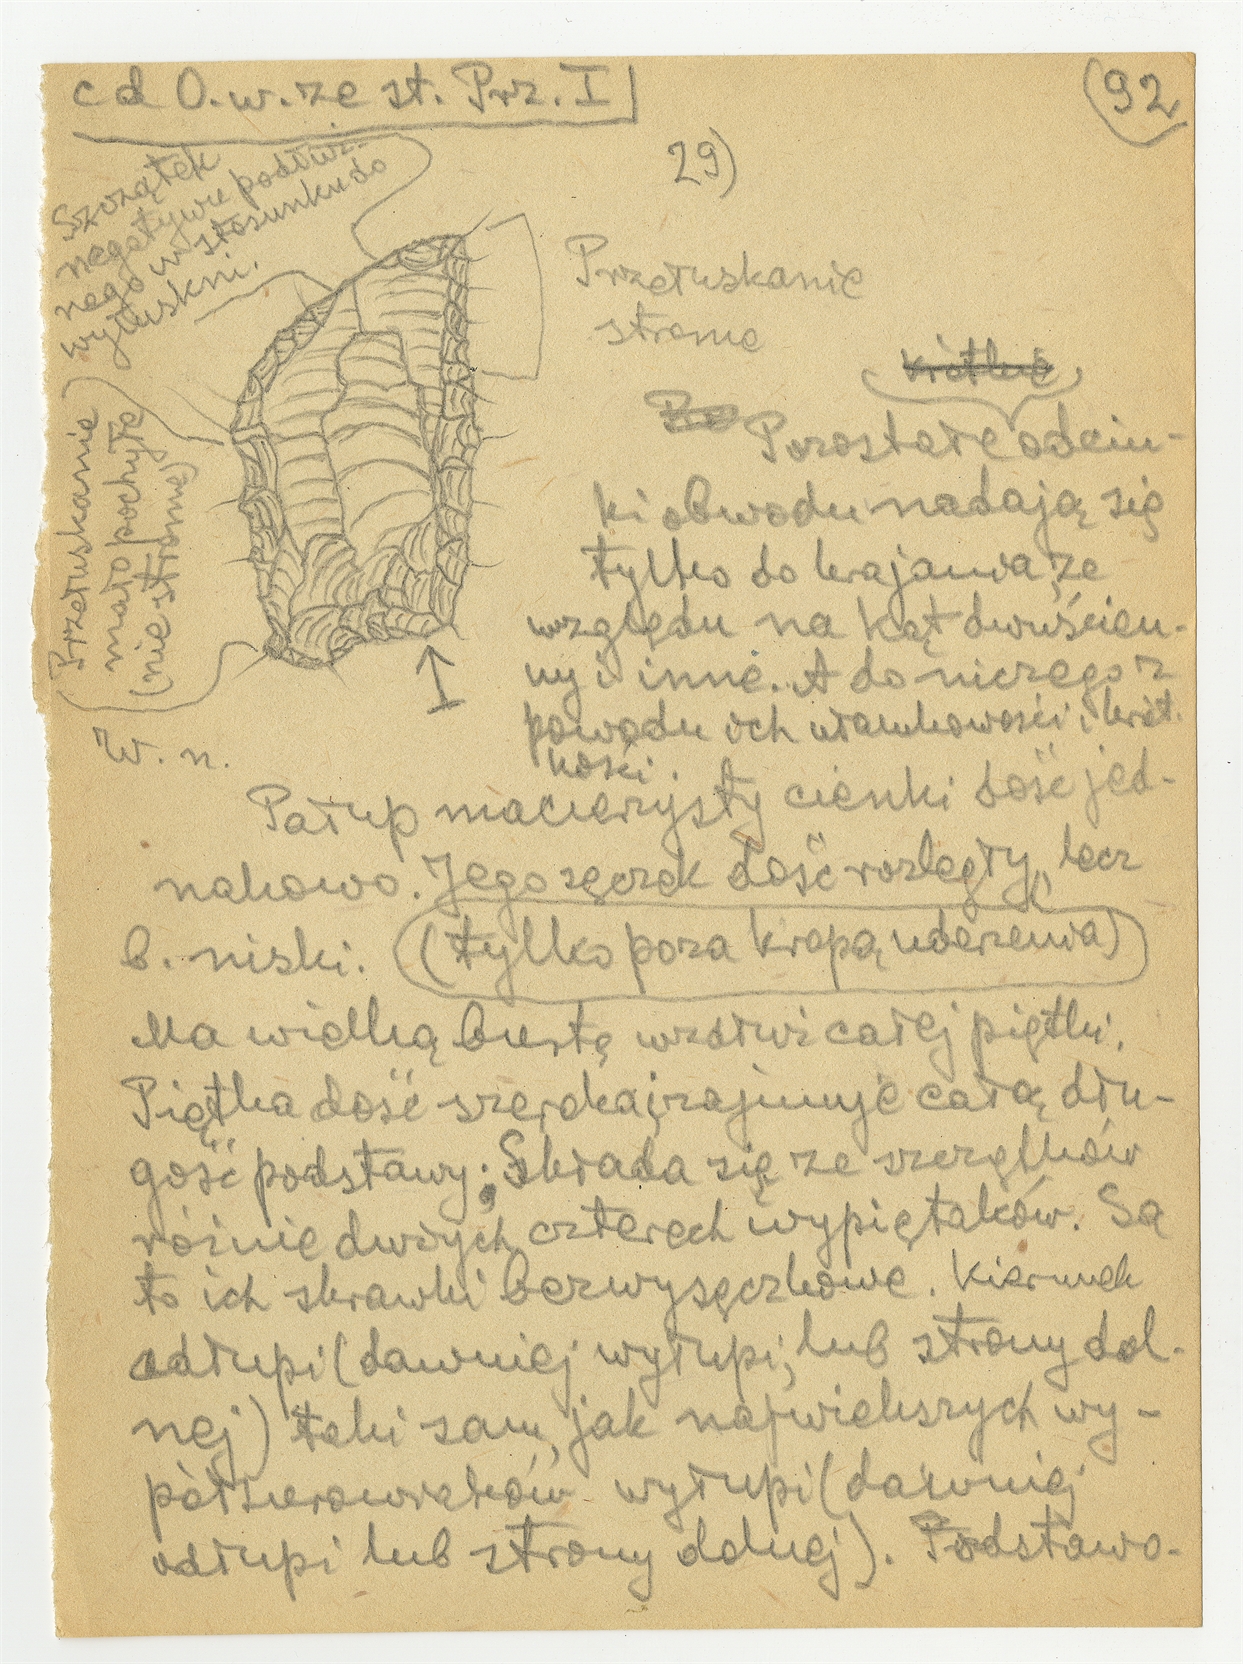 cd O.w. ze st. Prz. I
92
29)
Szczątek
negatywu podłuż-
nego w stosunku do
wyłuskni.
Przełuskanie
strome
Przełuskanie
mało pochyłe
(nie strome)
W. n.
krótkie
Pozostałe odcin-
ki obwodu nadają się
tylko do krajania, ze
względu na kąt dwuścien-
ny i inne. A do niczego z
powodu ich ułamkowości i krót-
kości.
Płatup macierzysty cienki dość jed-
nakowo. Jego sęczek dość rozległy, lecz
b. niski. (tylko poza kropą uderzenia)
Ma wielką burtę wzdłuż całej piętki.
Piętka dość szeroka, zajmuje całą dłu-
gość podstawy; Składa się ze szczątków
różnie dużych czterech wypiętaków. Są
to ich skrawki bezwysęczkowe. Kierunek
odłupi (dawniej wyłupi, lub strony dol-
nej) taki sam, jak największych wy-
wyłupi (dawniej
odłupi lub strony dolnej). Podstawo-